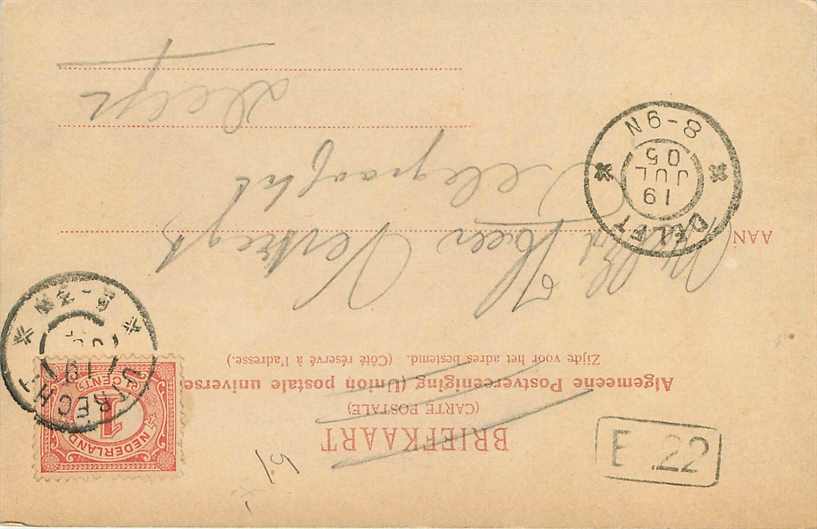 E 22
BRIEFKAART
(CARTE POSTALE)
Algemeene Postvereeniging (Union postale universe
Zijde voor het adres bestemd. (Côté réservé à l'adresse.)
NEDERLAND
1
CENT
UTRECHT
19
AAN Heer Vertregt
Telegraafkt
Delft
DELFT
19
JUL
05
8-9N